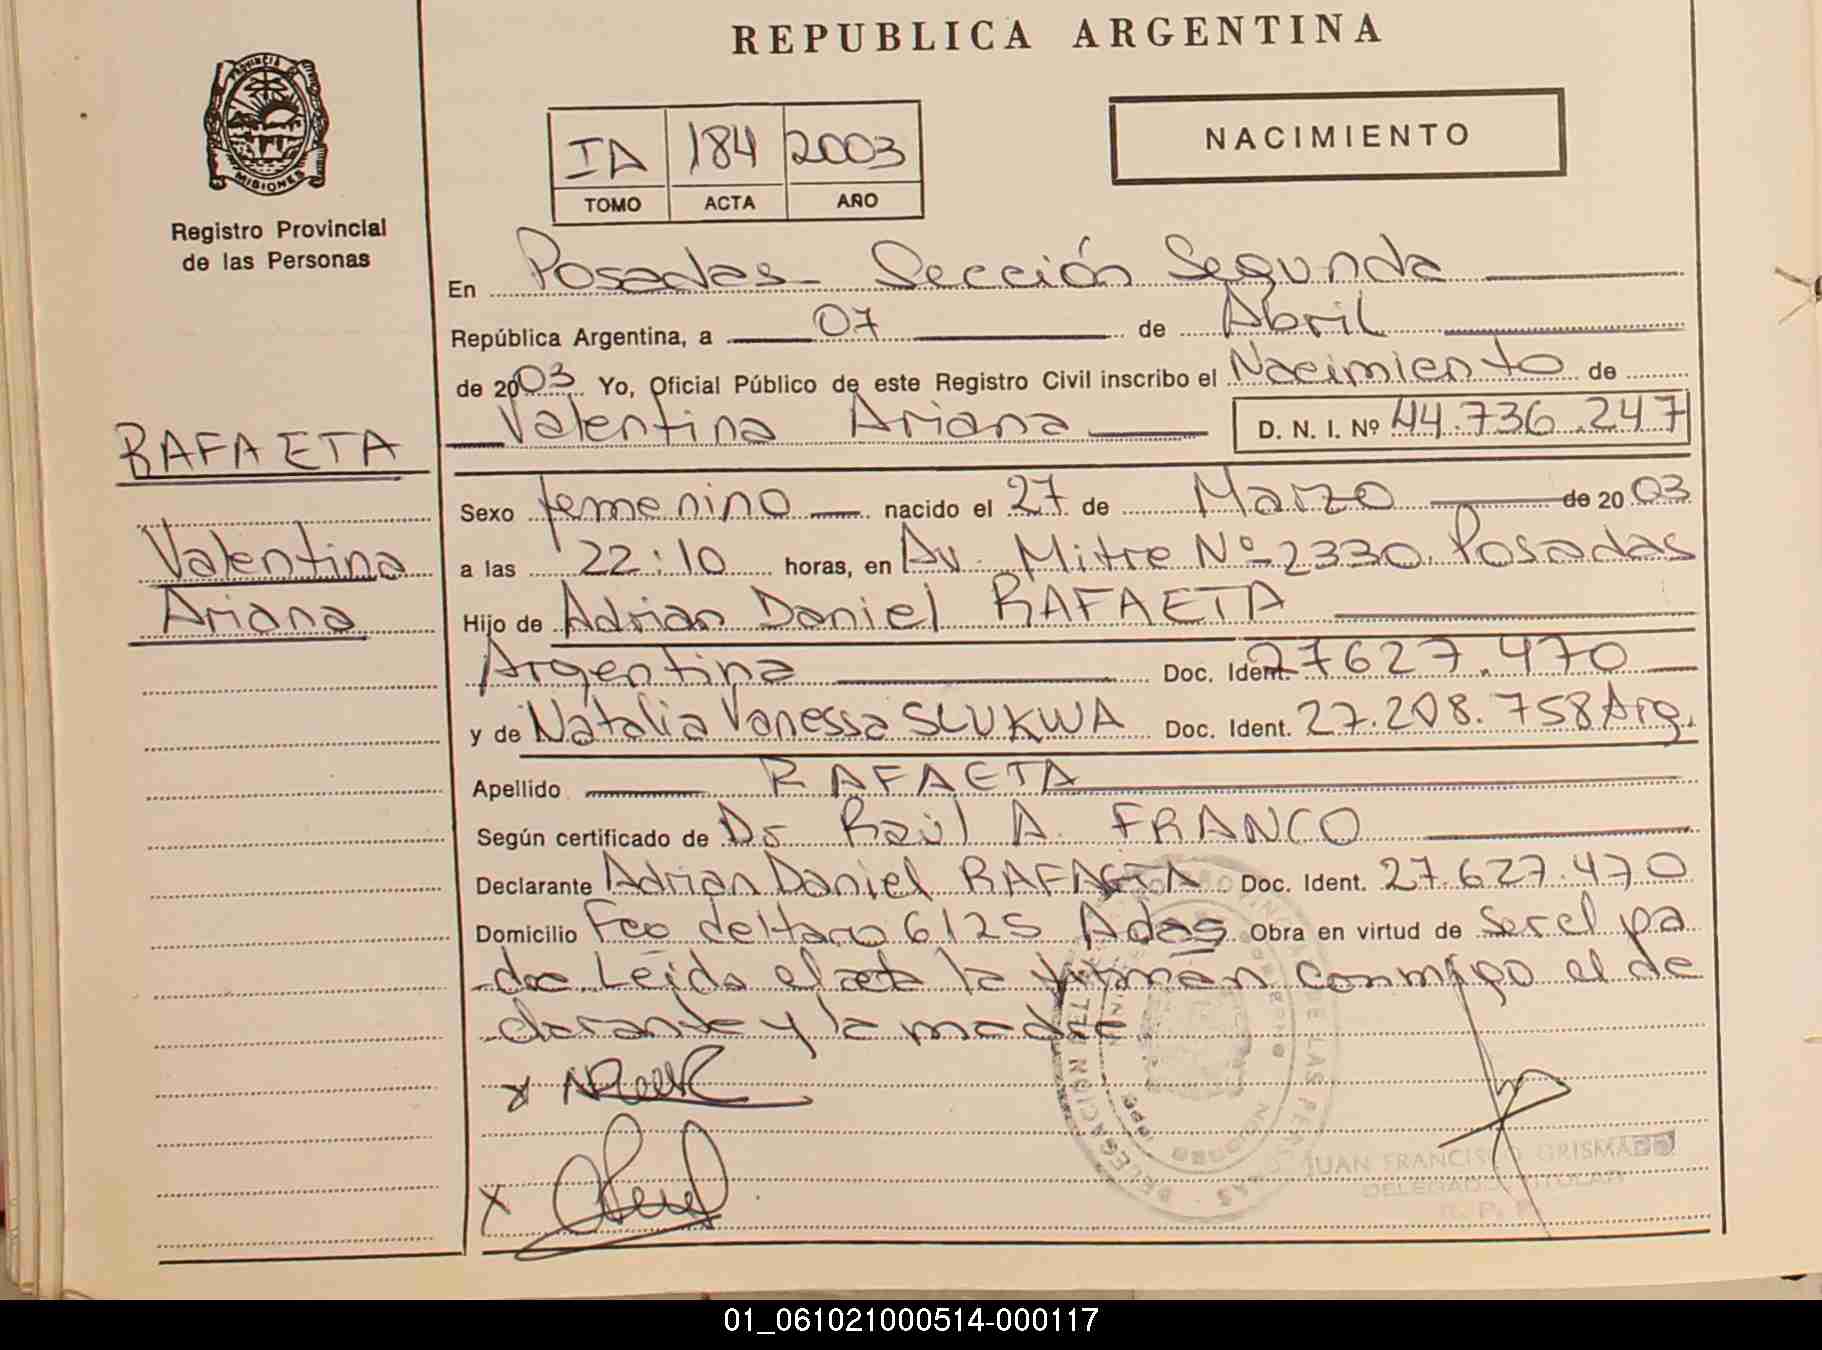 REPUBLICA ARGENTINA
PROVINCIA DE
MISIONES
Registro Provincial
de las Personas
IA 184 2003
TOMO ACTA AÑO
NACIMIENTO
En Posadas - Sección Segunda
República Argentina, a 07 de Abril
de 2003 Yo, Oficial Público de este Registro Civil inscribo el Nacimiento de
Valentina Ariana D. N. I. Nº 44.736.247
RAFAETA
Valentina
Ariana
Sexo femenino nacido el 27 de Marzo de 2003
a las 22:10 horas, en Av. Mitre Nº 2330. Posadas
Hijo de Adrian Daniel RAFAETA
Argentina Doc. Ident. 27627.470
y de Natalia Vanessa SLUKWA Doc. Ident. 27.208.758 Arg.
Apellido RAFAETA
Según certificado de Dr Raúl A. FRANCO
Declarante Adrian Daniel RAFAETA Doc. Ident. 27.627.470
Domicilio Fco de Haro 6125 Adas Obra en virtud de ser el pa
dre Leida el acta la firman conmigo el de
clarante y la madre
JUAN FRANCISCO GRISMADO
DELEGADO TITULAR
R. P. P.
01_061021000514-000117